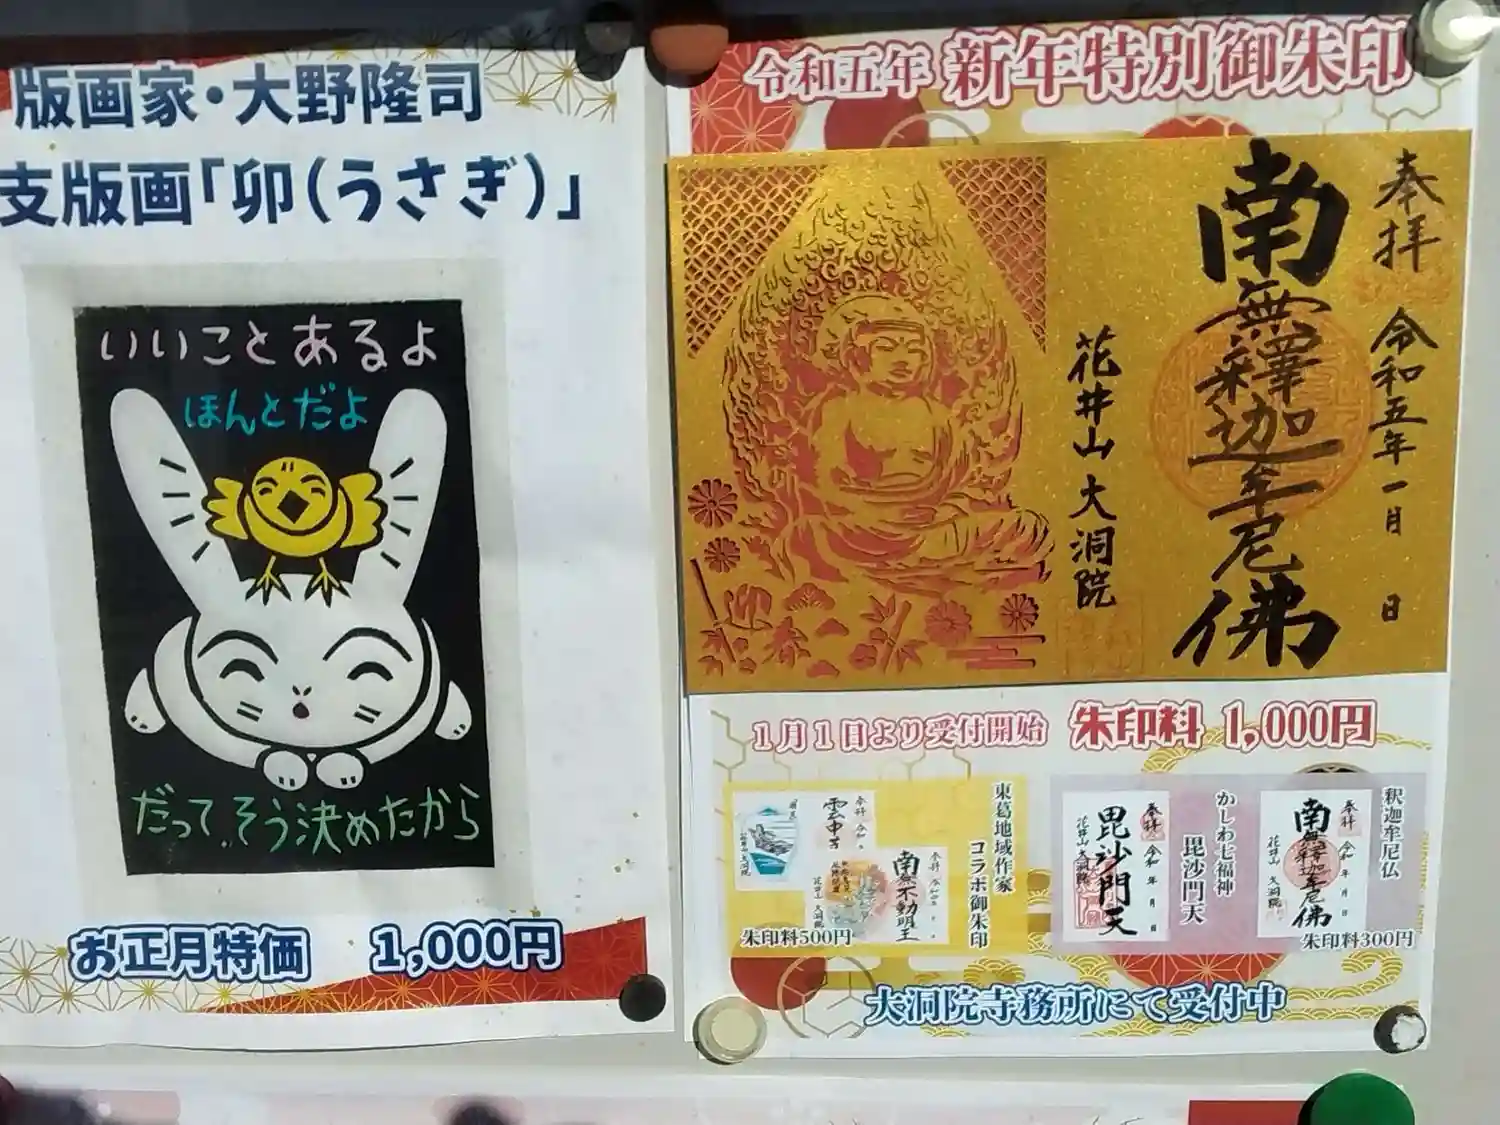 版画家・大野隆司
支版画「卯(うさぎ)」
いいことあるよ
ほんとだよ
だってそう決めたから
お正月特価 1,000円
令和五年 新年特別御朱印
奉拝 令和五年一月 日
南無釋迦牟尼佛
花井山 大洞院
卯
春
1月1日より受付開始 朱印料 1,000円
東葛地域作家
コラボ御朱印
南無不動明王
朱印料500円
かしわ七福神
毘沙門天
奉拝 令和 年 月 日
毘沙門天
花井山 大洞院
釈迦牟尼仏
奉拝 令和 年 月 日
南無釋迦牟尼佛
花井山 大洞院
朱印料300円
大洞院寺務所にて受付中